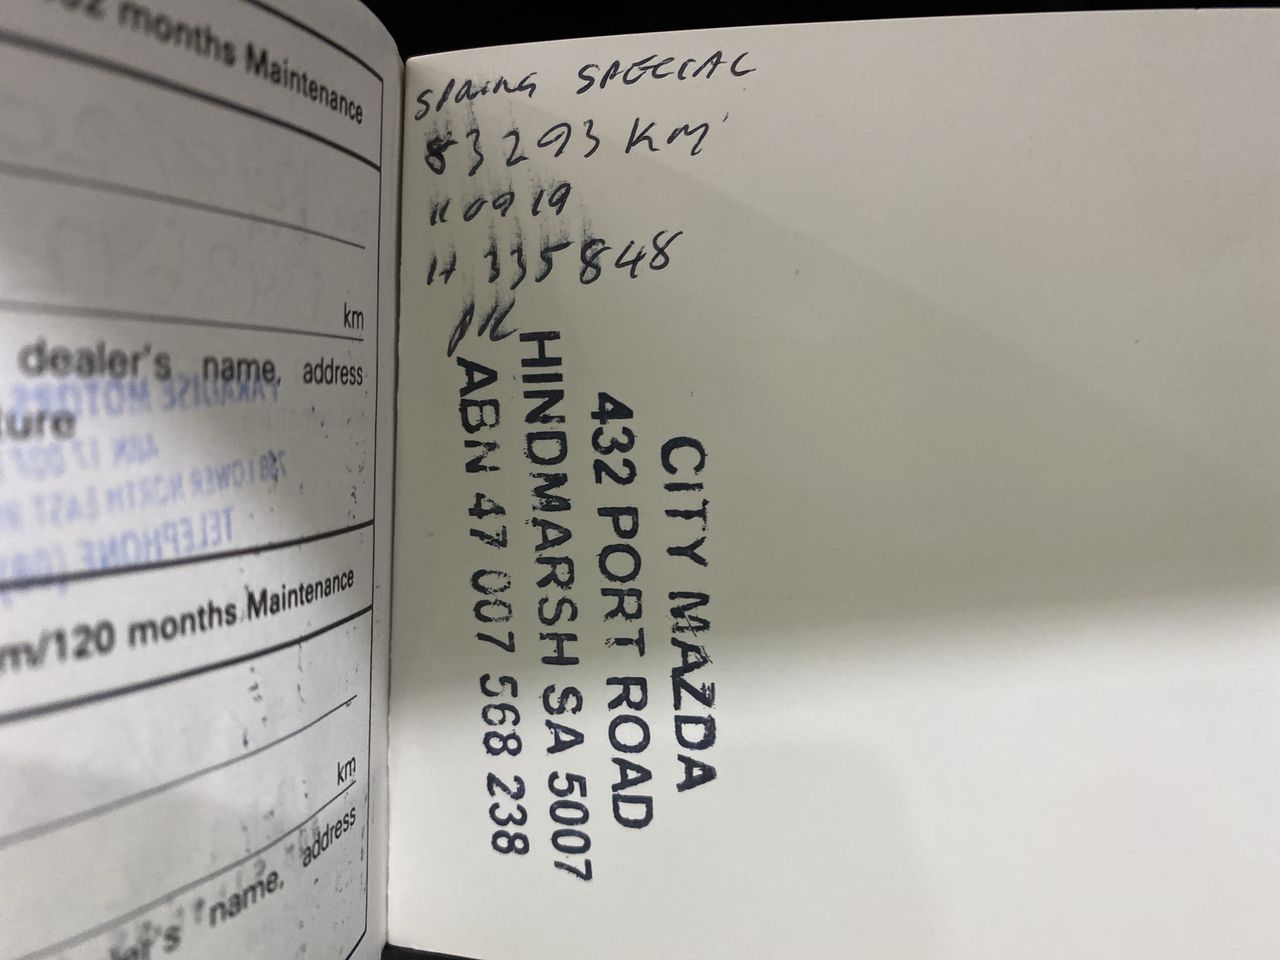 months Maintenance
km
dealer's name, address
PARADISE MOTORS
ABN 17 007
LOWER NORTH EAST
TELEPHONE
m/120 months Maintenance
km
name, address
SPRING SPECIAL
83293 KM
11 09 19
H 335848
CITY MAZDA
432 PORT ROAD
HINDMARSH SA 5007
ABN 47 007 568 238